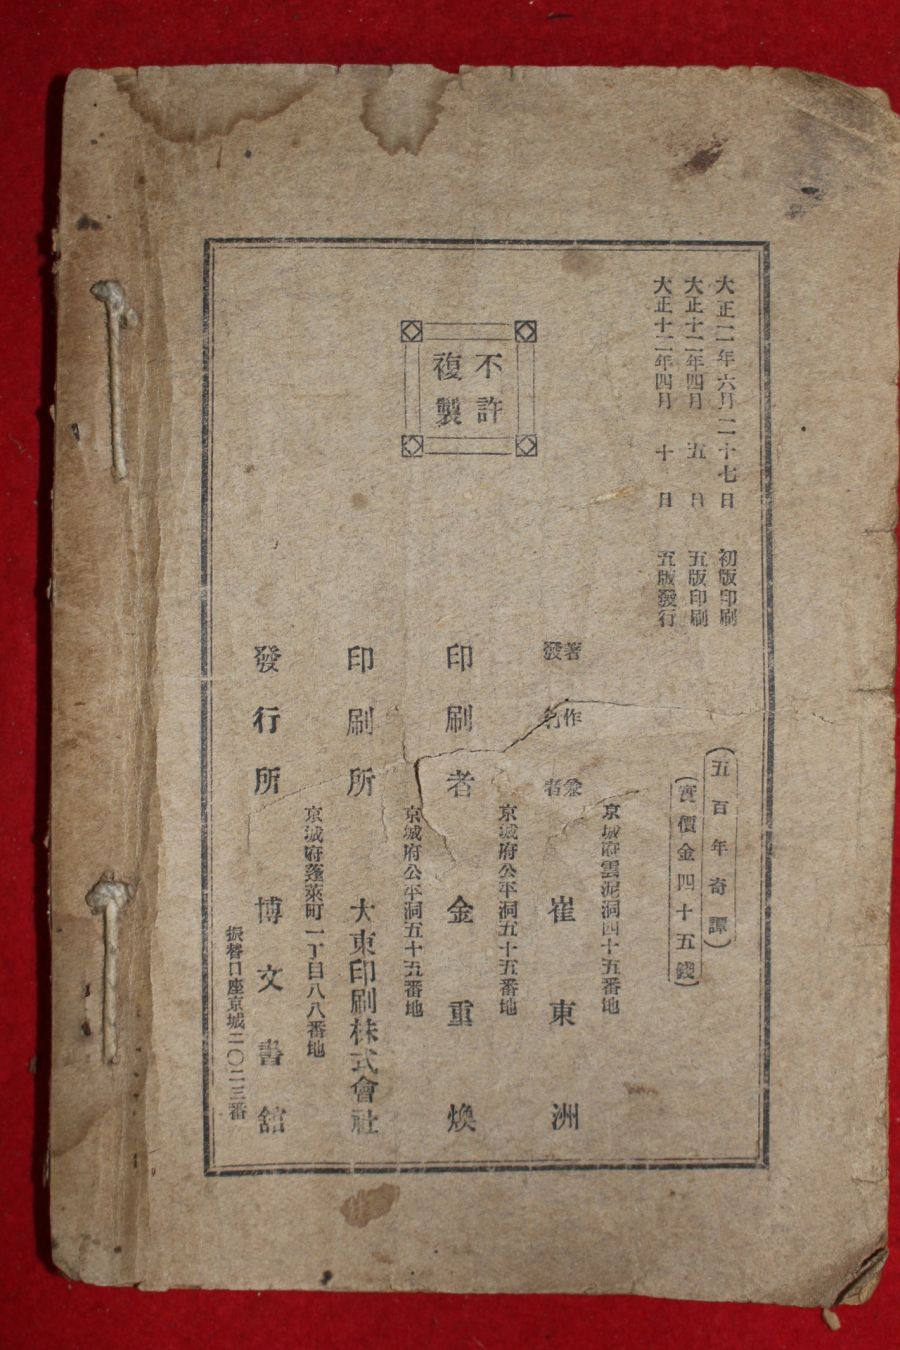 大正二年六月二十七日 初版印刷
大正十二年四月 五 日 五版印刷
大正十二年四月 十 日 五版發行
不許
複製
(五百年奇譚)
(實價金四十五錢)
京城府雲泥洞四十五番地
著作兼
發行者 崔東洲
京城府公平洞五十五番地
印刷者 金重煥
京城府公平洞五十五番地
印刷所 大東印刷株式會社
京城府蓬萊町一丁目八八番地
發行所 博文書舘
振替口座京城二〇二三番